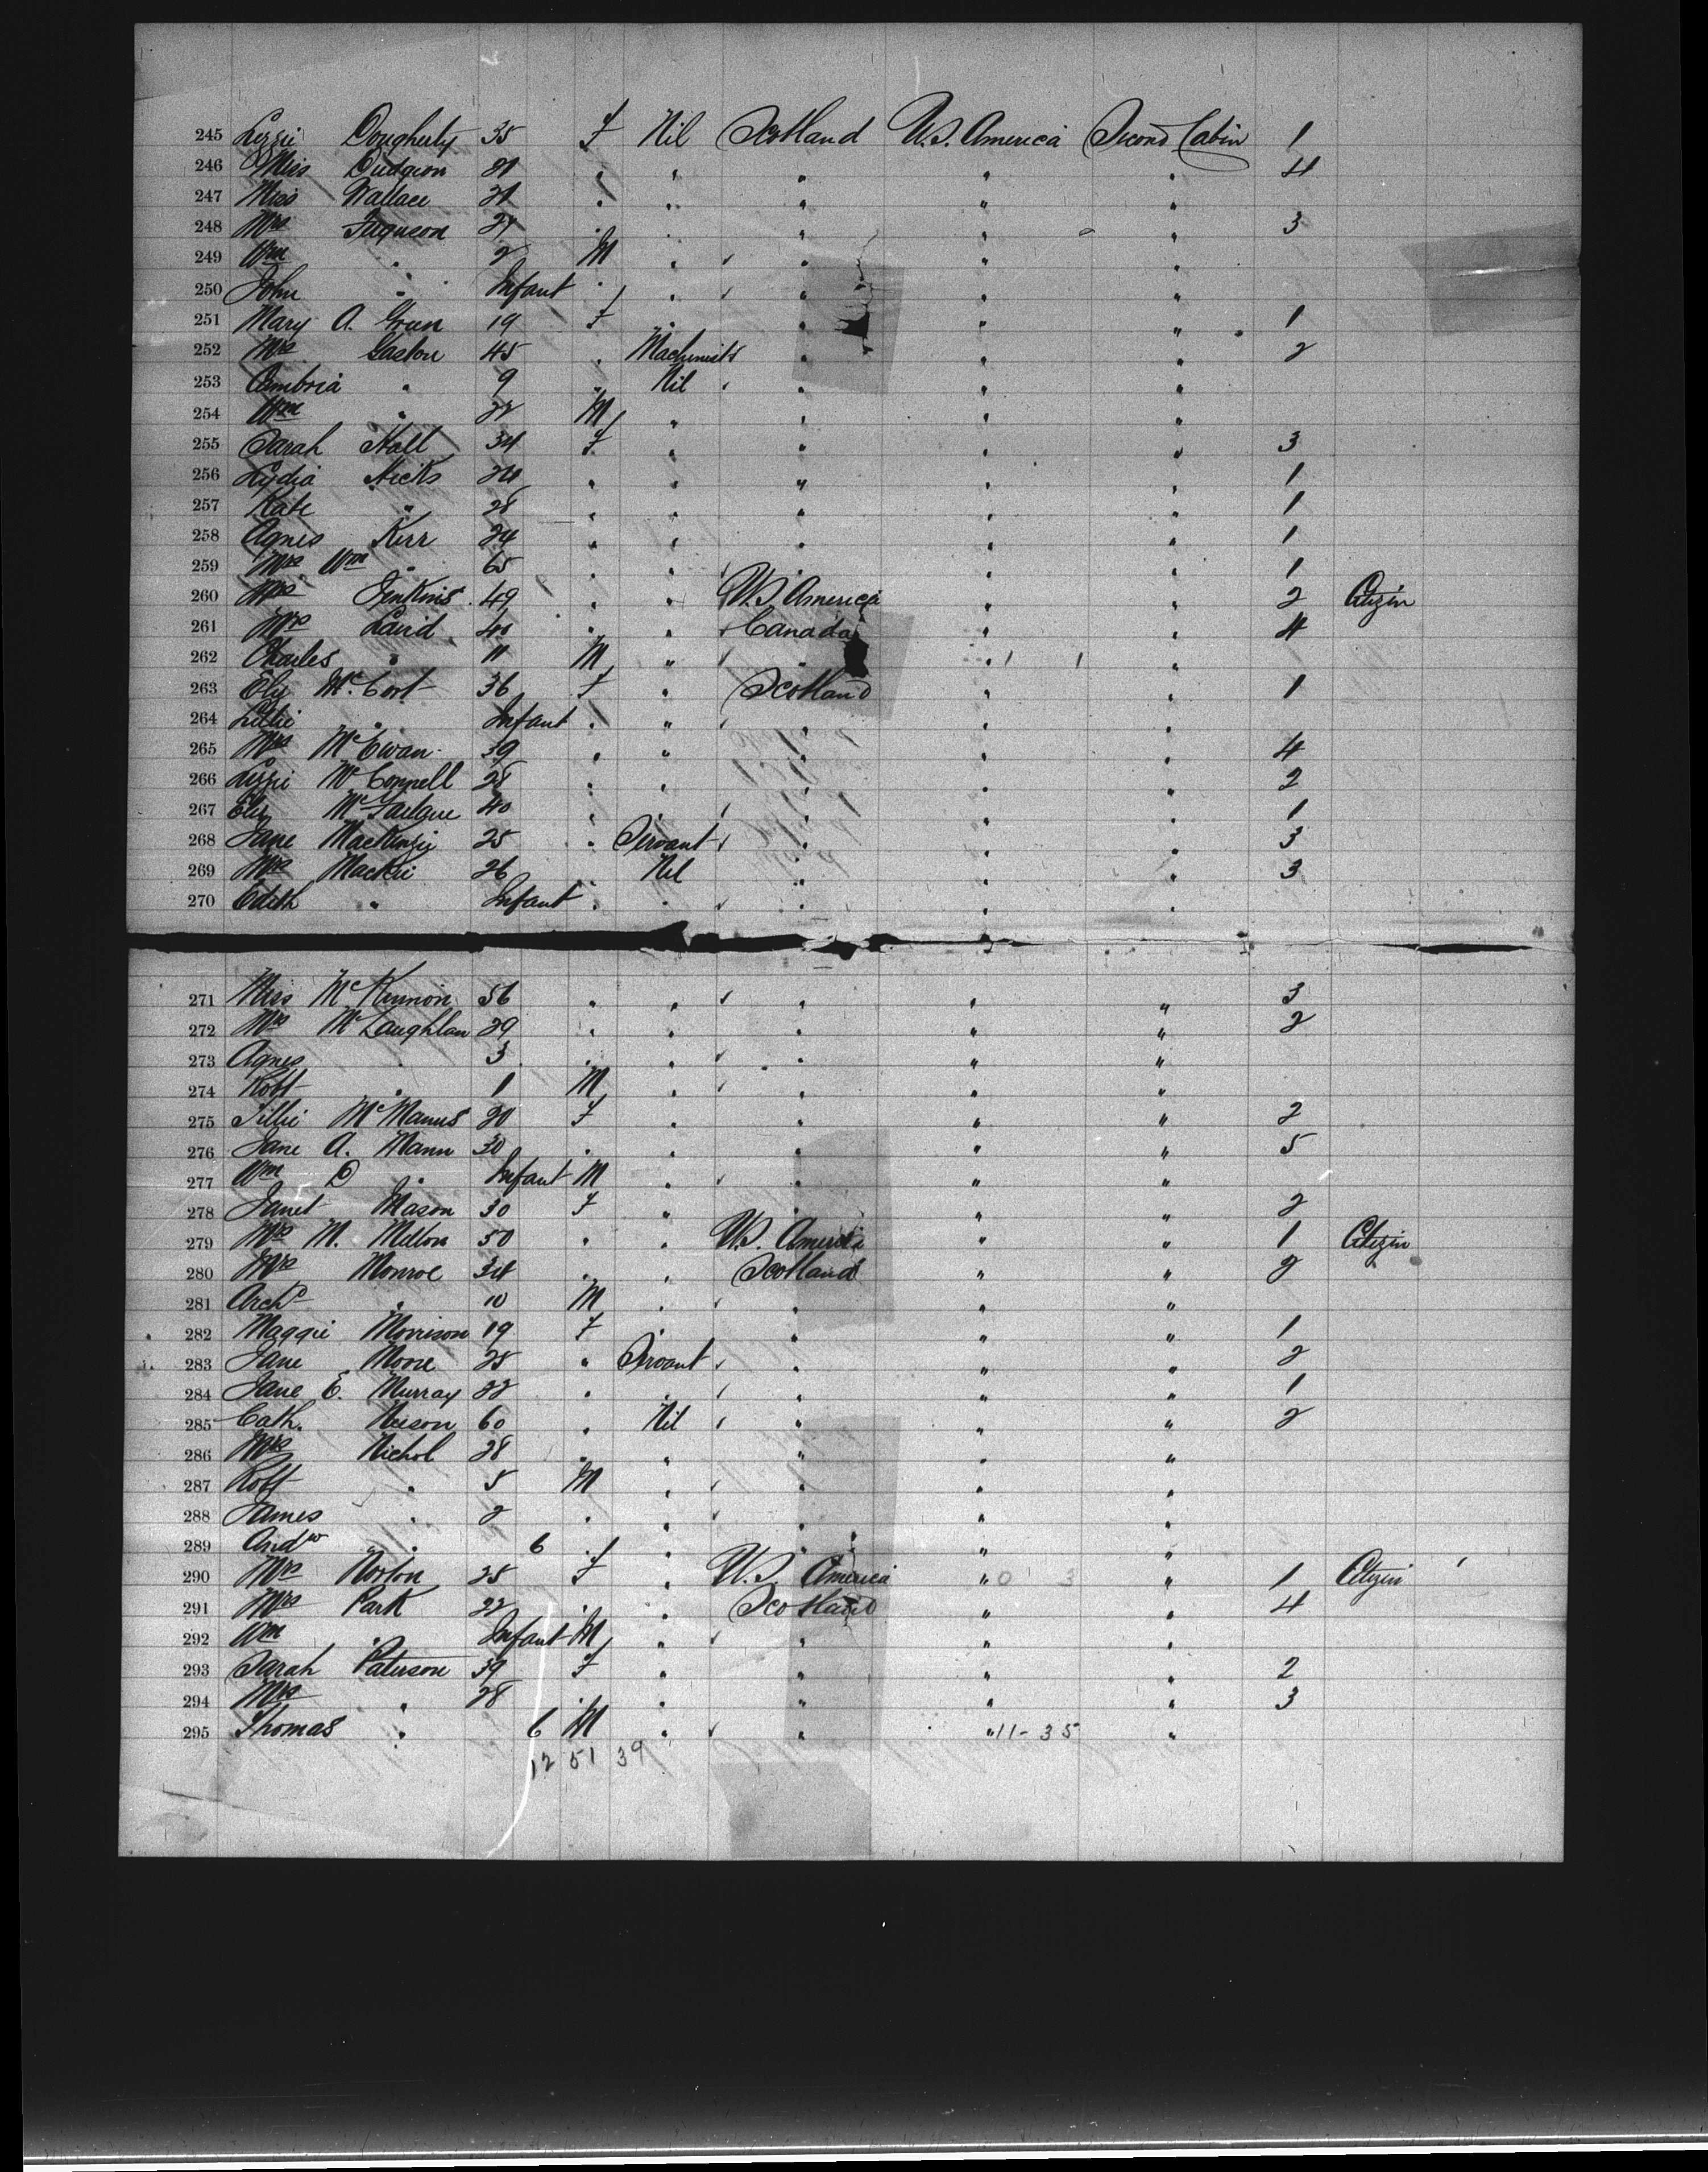 245 Lizzie Dougherty 35 F Nil Scotland U.S. America Second Cabin 1
246 Miss Dudgeon 21 " " " " " 4
247 Miss Wallace 21 " " " " "
248 Mrs Ferguson 27 " " " " " 3
249 Wm " 2 M " " " "
250 John " Infant " " " " "
251 Mary A. Green 19 F " " " " 1
252 Mrs Gaston 45 " Machinist " " " 2
253 Cambria " 9 " Nil " " "
254 Wm " 22 M " " " "
255 Sarah Hall 34 F " " " " 3
256 Lydia Hicks 24 " " " " " 1
257 Kate " 28 " " " " " 1
258 Agnes Kerr 24 " " " " " 1
259 Mrs Wm " 65 " " " " " 1
260 Mrs Jenkins 49 " " U.S. America " " 2 Citizen
261 Mrs Laird 40 " " Canada " " 4
262 Charles " 11 M " " " "
263 Eliz McCort 36 F " Scotland " " 1
264 Lillie " Infant " " " " "
265 Mrs McEwan 39 " " " " " 4
266 Lizzie McConnell 28 " " " " " 2
267 Eliz 40 " " " " " 1
268 Jane MacKenzie 25 " Servant " " " 3
269 Mrs Mackie 26 " Nil " " " 3
270 Edith " Infant " " " " "
271 Miss McKinnon 56 " " " " " 3
272 Mrs McLaughlan 29 " " " " " 2
273 Agnes " 3 " " " " "
274 Robt " 1 M " " " "
275 Tillie McManus 20 F " " " " 2
276 Jane A. Mann 30 " " " " " 5
277 Wm D " Infant M " " " "
278 Janet Mason 30 F " " " " 2
279 Mrs M. Melton 50 " " U.S. America " " 1 Citizen
280 Mrs Monroe 34 " " Scotland " " 2
281 Archd " 10 M " " " "
282 Maggie Morrison 19 F " " " " 1
283 Jane Moore 25 " Servant " " " 2
284 Jane E. Murray 22 " " " " " 1
285 Cath. Neison 60 " Nil " " " 2
286 Mrs Nichol 28 " " " " "
287 Robt " 5 M " " " "
288 James " 2 " " " " "
289 Andw " 6 " " " " "
290 Mrs Norton 25 F " U.S. America " 0 3 " 1 Citizen
291 Mrs Park 22 " " Scotland " " 4
292 Wm " Infant M " " " "
293 Sarah Paterson 39 F " " " " 2
294 Mrs " 28 " " " " " 3
295 Thomas " 6 M " " " 11-35 "
12 51 39